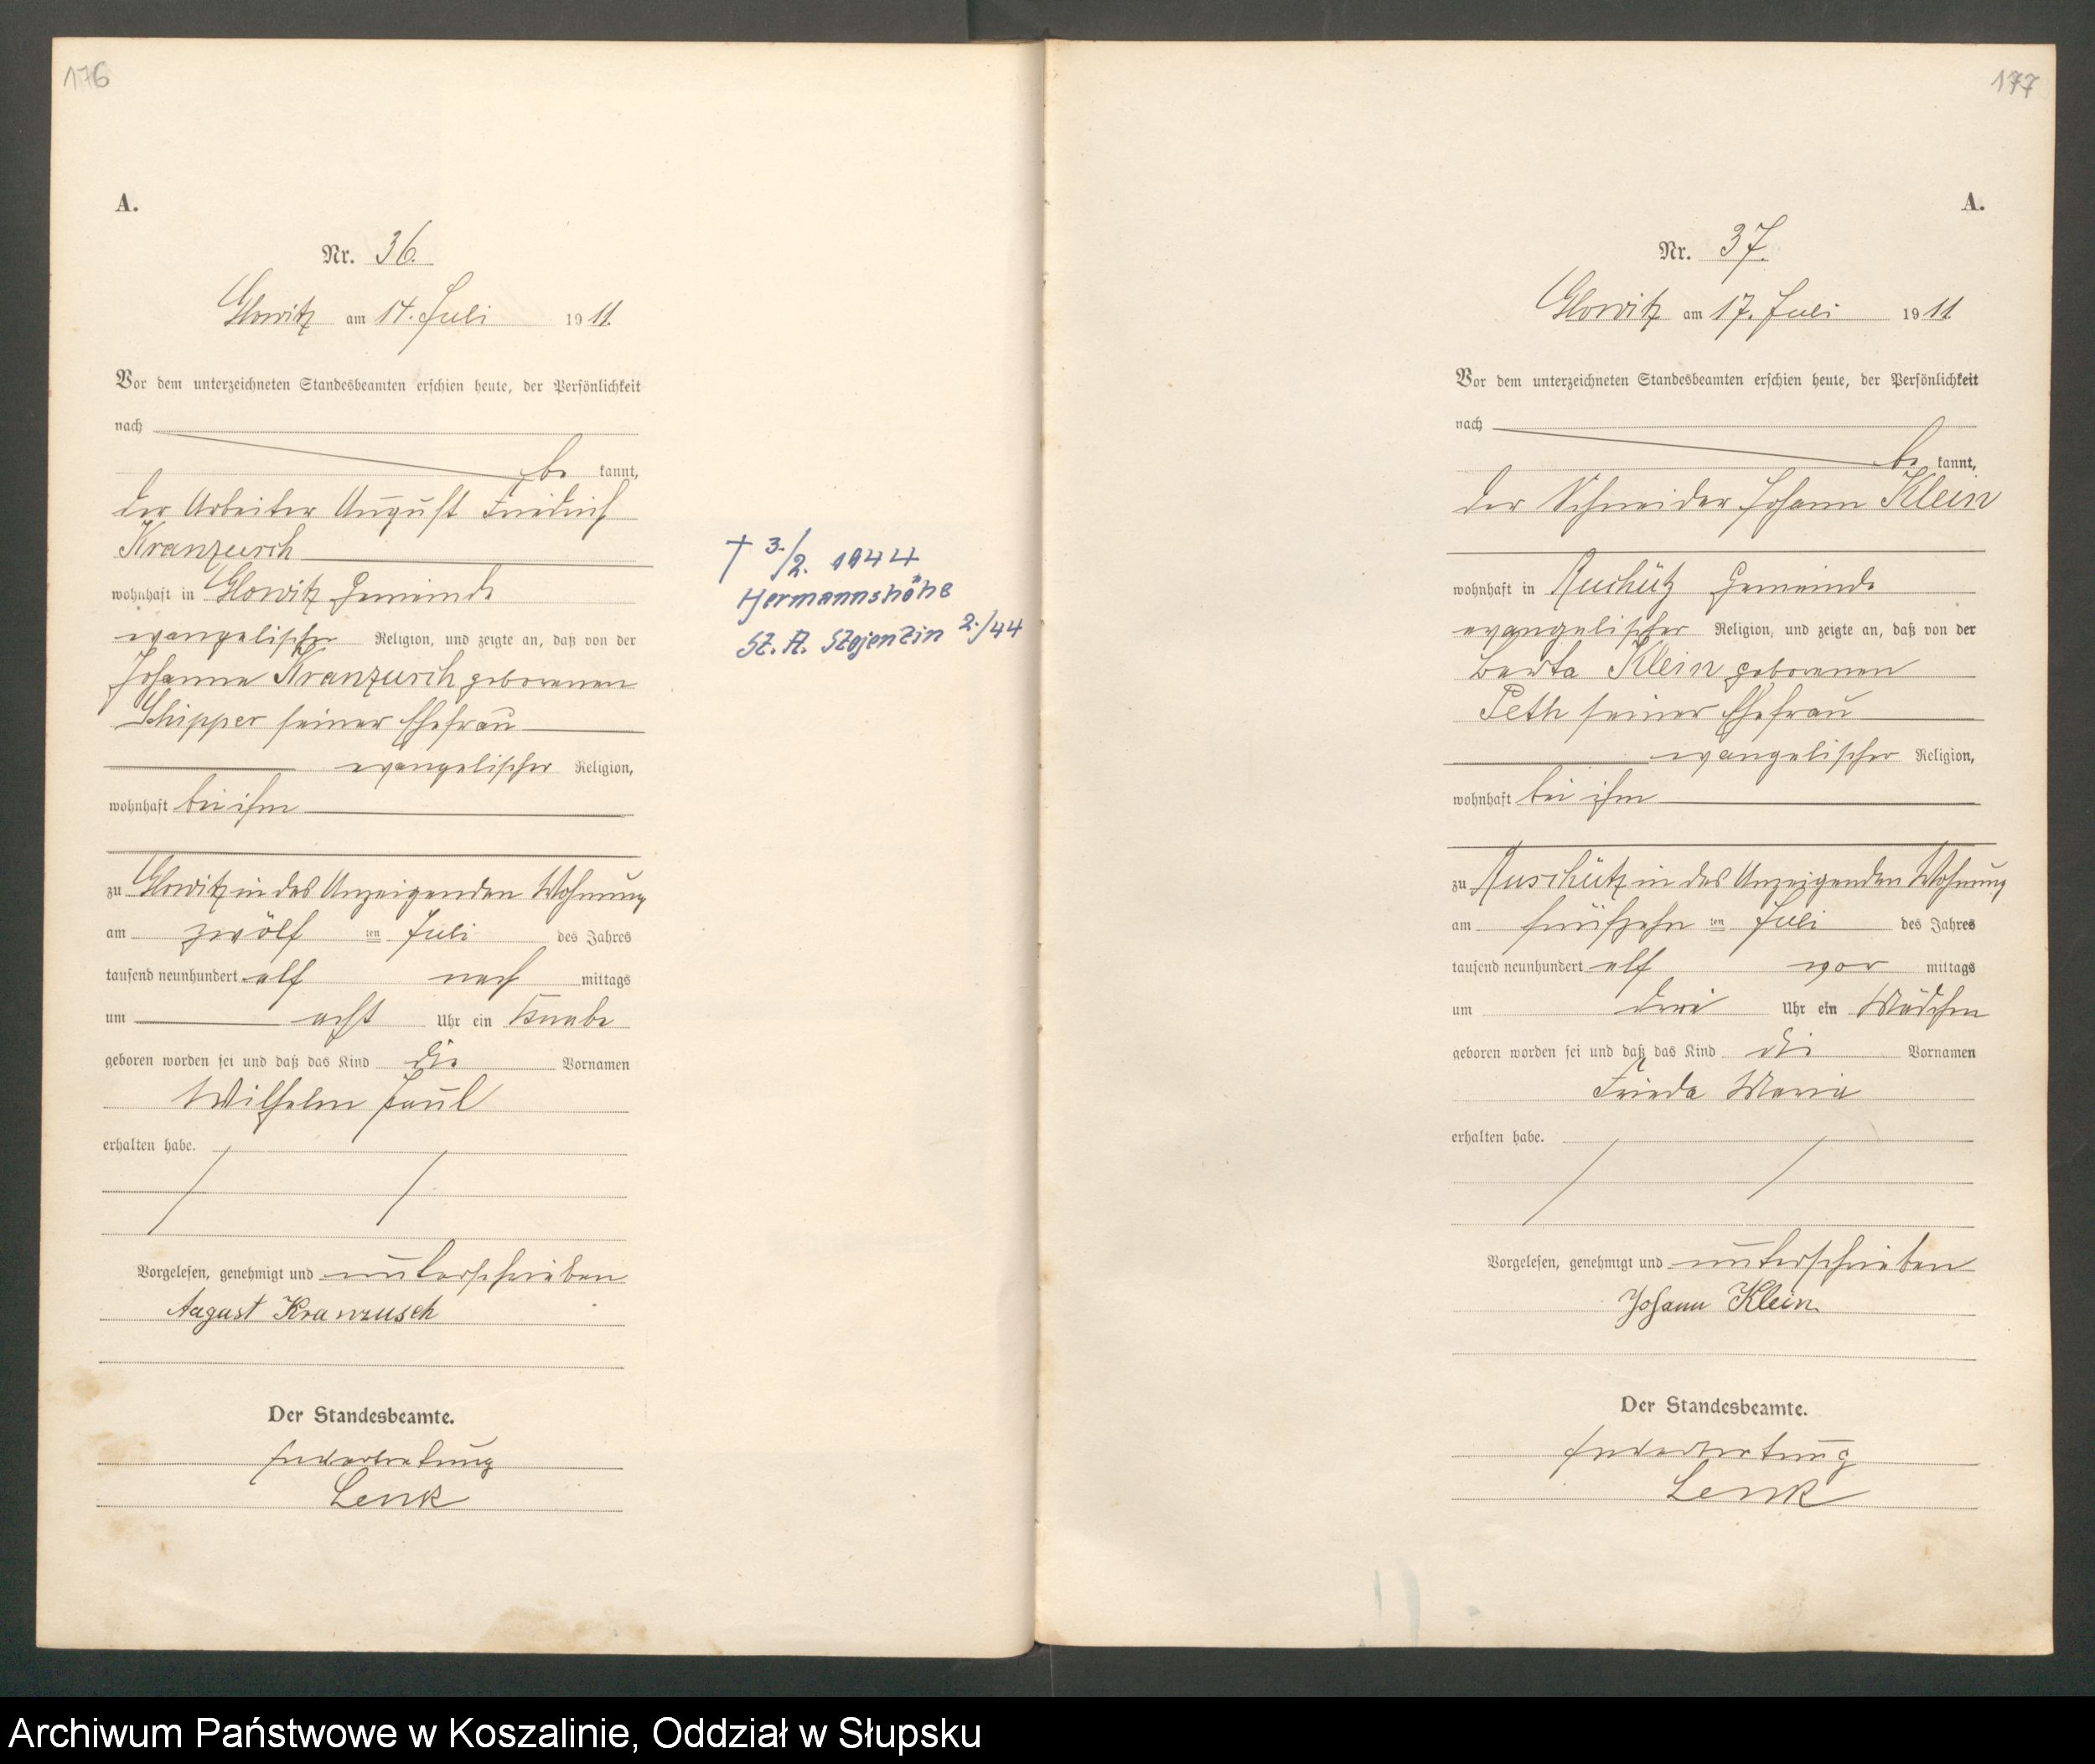 176
A.
Nr. 36.
Glowitz am 14. Juli 1911.
Vor dem unterzeichneten Standesbeamten erschien heute, der Persönlichkeit
nach
be kannt,
der Arbeiter August Friedrich
Kranzusch
wohnhaft in Glowitz Gemeinde
evangelischer Religion, und zeigte an, daß von der
Johanna Kranzusch geborenen
Schipper seiner Ehefrau
evangelischer Religion,
wohnhaft bei ihm
zu Glowitz in des Anzeigenden Wohnung
am zwölf ten Juli des Jahres
tausend neunhundert elf nach mittags
um acht Uhr ein Knabe
geboren worden sei und daß das Kind die Vornamen
Wilhelm Paul
erhalten habe.
Vorgelesen, genehmigt und unterschrieben
August Kranzusch
Der Standesbeamte.
In Vertretung
Lenk
† 3./2. 1944
Hermannshöhe
St. A. Stojentin 2./44
177
A.
Nr. 37.
Glowitz am 17. Juli 1911
Vor dem unterzeichneten Standesbeamten erschien heute, der Persönlichkeit
nach
be kannt,
der Schneider Johann Klein
wohnhaft in Ruschütz Gemeinde
evangelischer Religion, und zeigte an, daß von der
Berta Klein geborenen
Peth seiner Ehefrau
evangelischer Religion,
wohnhaft bei ihm
zu Ruschütz in des Anzeigenden Wohnung
am fünfzehn ten Juli des Jahres
tausend neunhundert elf vor mittags
um drei Uhr ein Mädchen
geboren worden sei und daß das Kind die Vornamen
Frieda Maria
erhalten habe.
Vorgelesen, genehmigt und unterschrieben
Johann Klein.
Der Standesbeamte.
In Vertretung
Lenk
Archiwum Państwowe w Koszalinie, Oddział w Słupsku